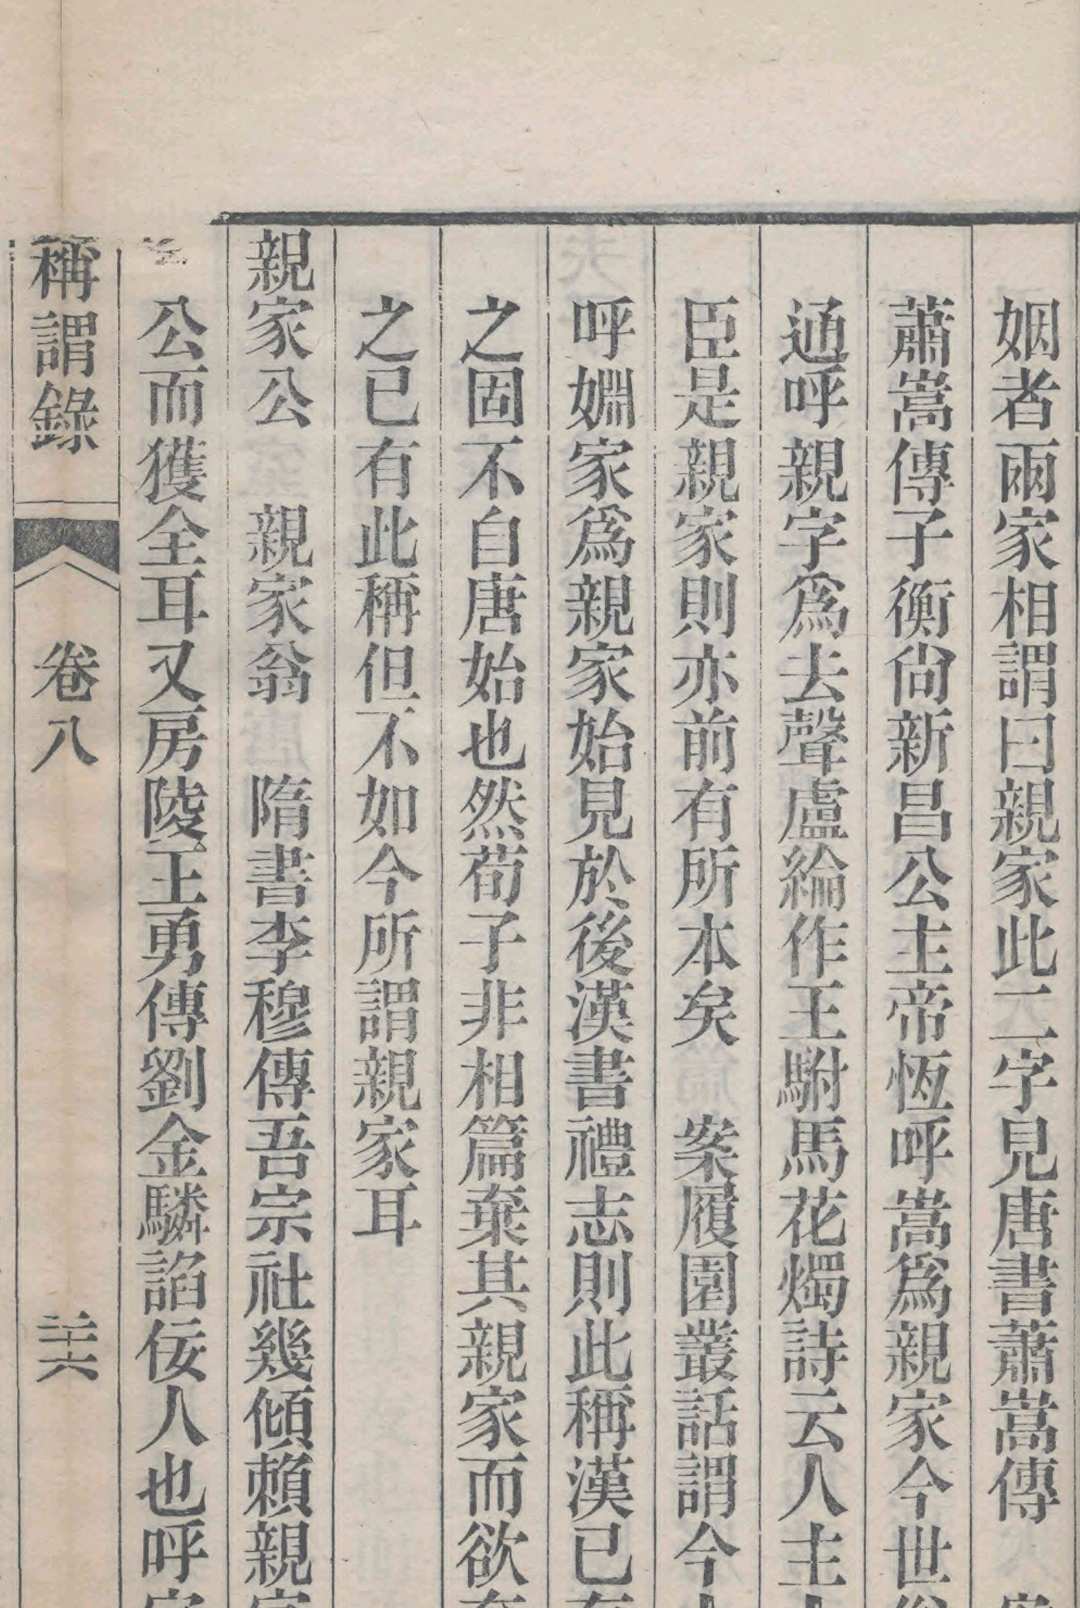 姻者兩家相謂曰親家此二字見唐書蕭嵩傳
蕭嵩傳子衡尙新昌公主帝恆呼嵩爲親家今世
通呼親字爲去聲盧綸作王駙馬花燭詩云人主
臣是親家則亦前有所本矣　案履園叢話謂今
呼婣家爲親家始見於後漢書禮志則此稱漢已
之固不自唐始也然荀子非相篇棄其親家而欲
之已有此稱但不如今所謂親家耳
親家公　親家翁　隋書李穆傳吾宗社幾傾賴親
公而獲全耳又房陵王勇傳劉金驎諂佞人也呼
稱謂錄　卷八　二十六